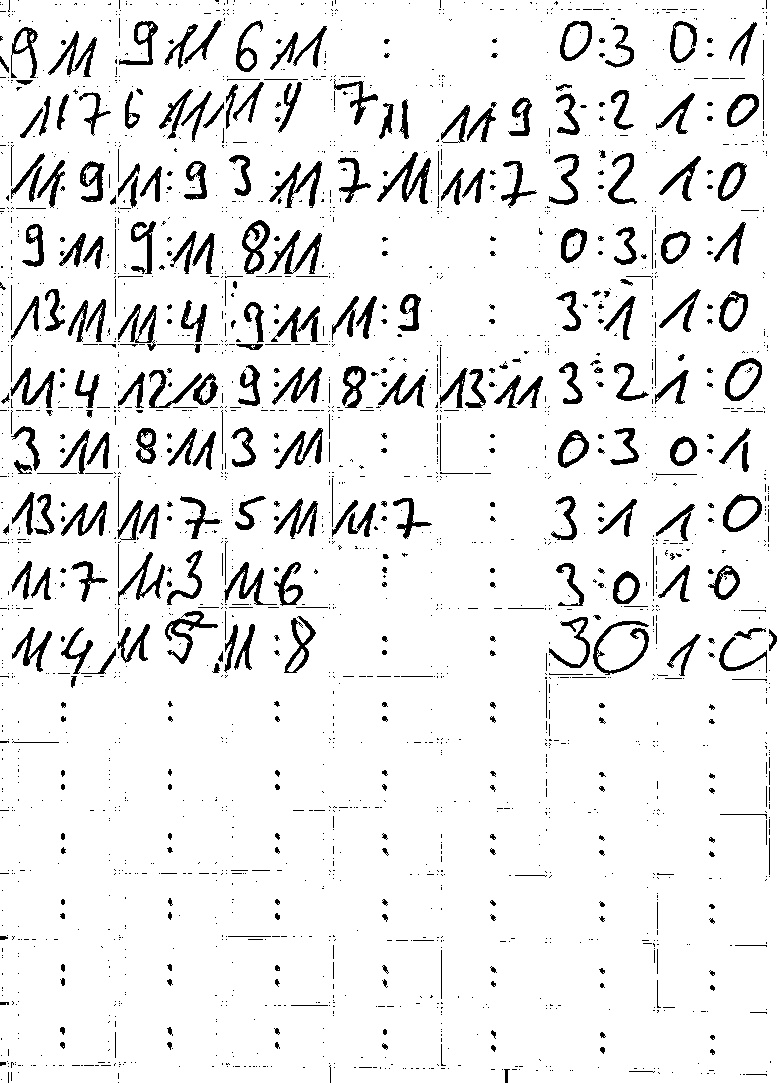 9:11 9:11 6:11 : : 0:3 0:1
11:7 6:11 11:9 7:11 11:9 3:2 1:0
11:9 11:9 3:11 7:11 11:7 3:2 1:0
9:11 9:11 8:11 : : 0:3 0:1
13:11 11:4 9:11 11:9 : 3:1 1:0
11:4 12:10 9:11 8:11 13:11 3:2 1:0
3:11 8:11 3:11 : : 0:3 0:1
13:11 11:7 5:11 11:7 : 3:1 1:0
11:7 11:3 11:6 : : 3:0 1:0
11:4 11:5 11:8 : : 3:0 1:0
: : : : : : :
: : : : : : :
: : : : : : :
: : : : : : :
: : : : : : :
: : : : : : :